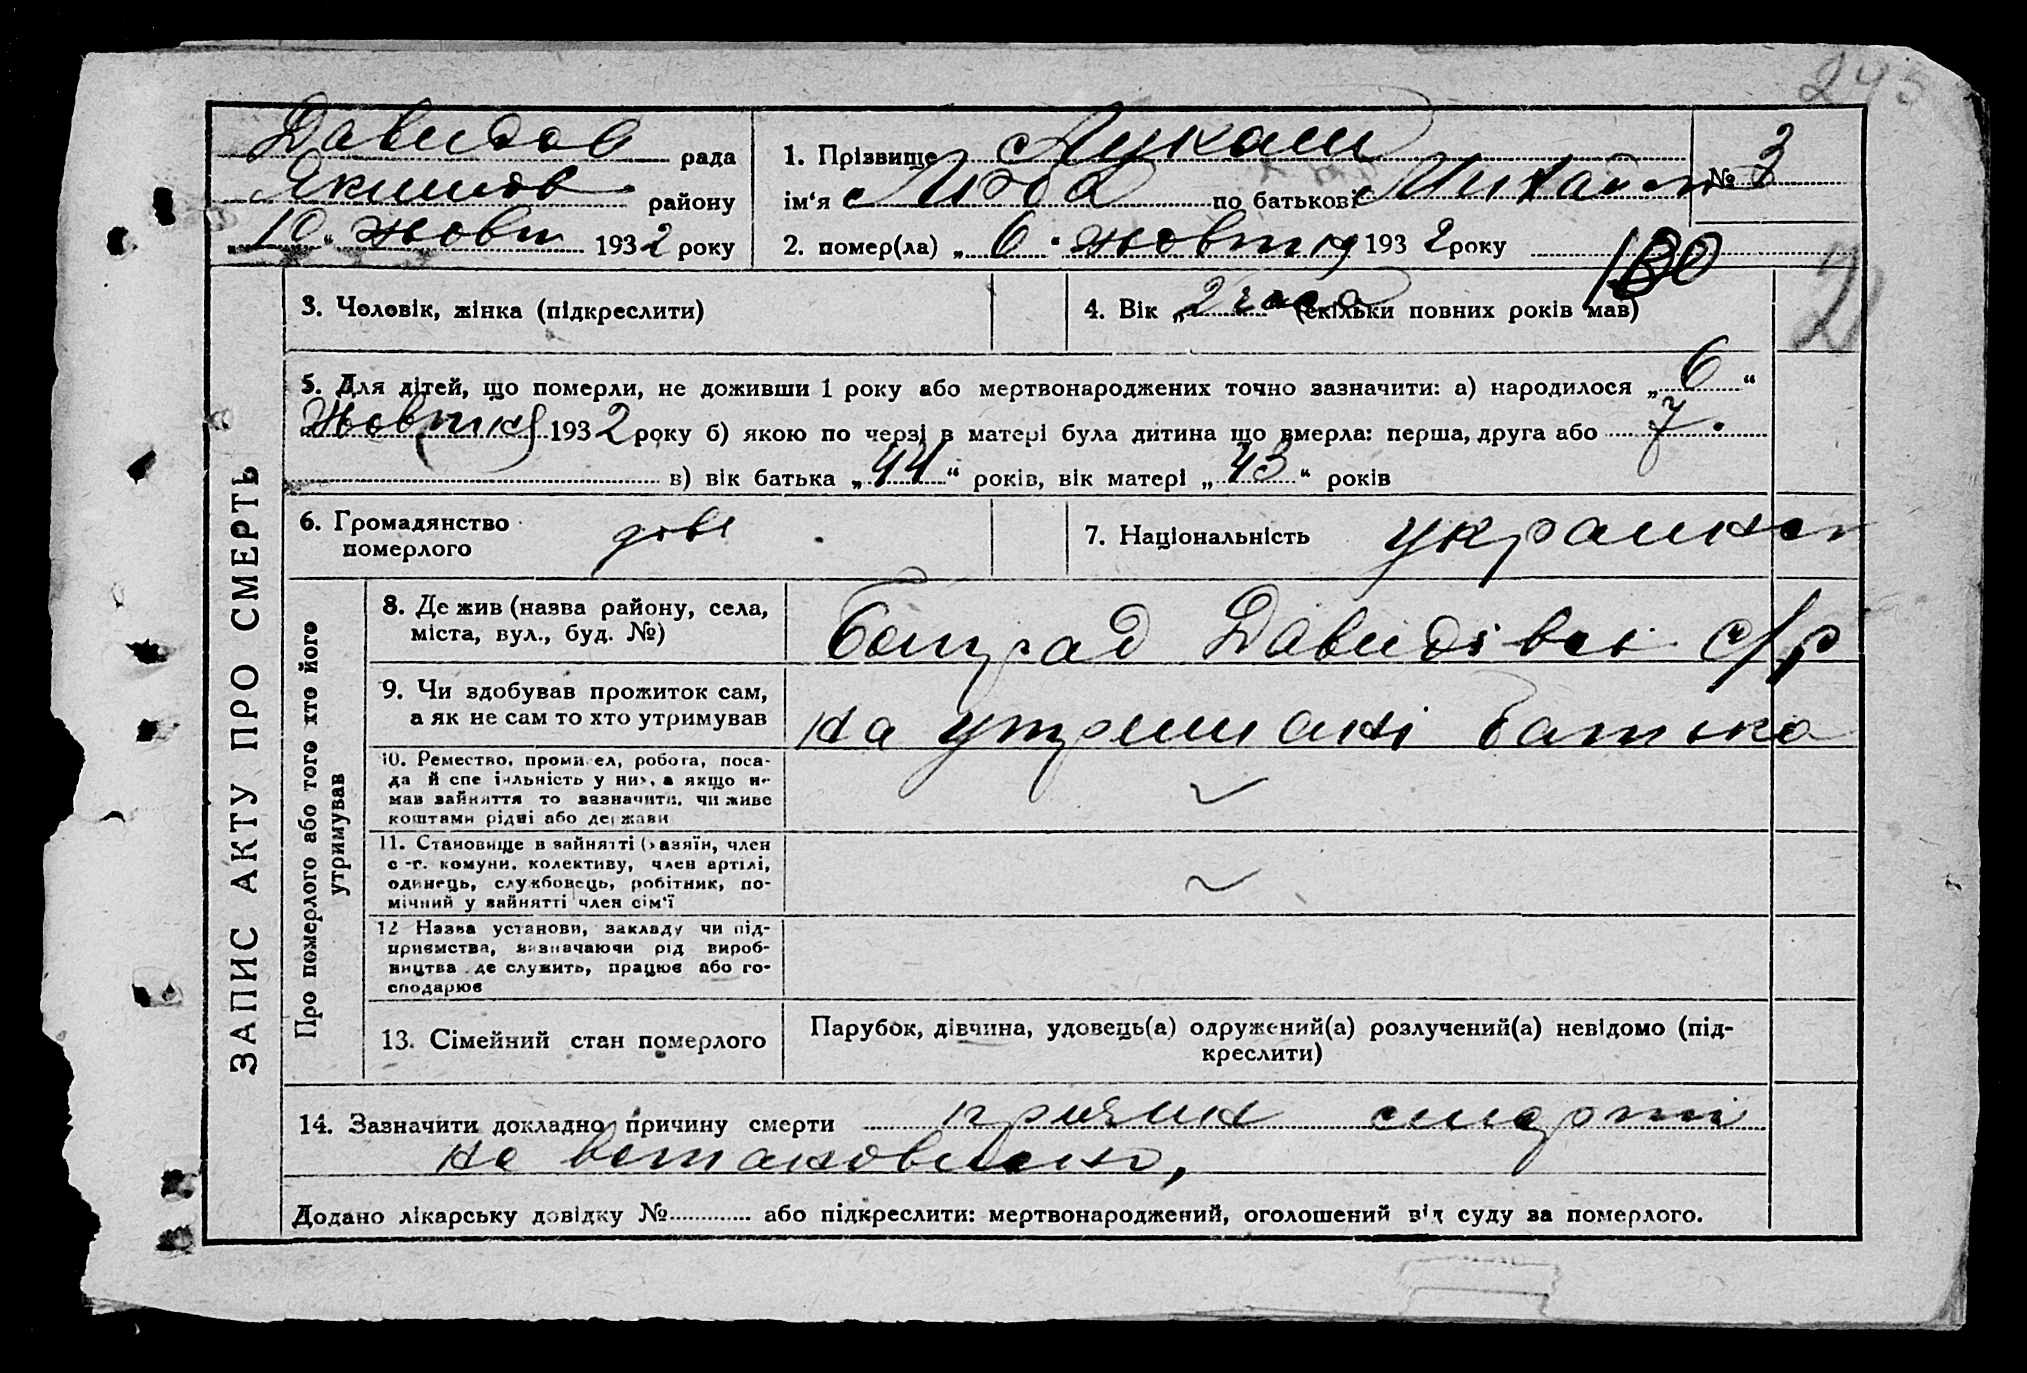 245
Давидов рада
Якимов району
„10“ жовт 1932 року
1. Прізвище Лукаш
ім'я Люба по батькові Михайл
№ 3
2. помер(ла) „6“ жовтня 1932 року
130
2
ЗАПИС АКТУ ПРО СМЕРТЬ
3. Чоловік, жінка (підкреслити)
4. Вік „2 часа“ (скільки повних років мав)
5. Для дітей, що померли, не доживши 1 року або мертвонароджених точно зазначити: а) народилося „6“
жовтня 1932 року б) якою по черзі в матері була дитина що вмерла: перша, друга або 7.
в) вік батька „44“ років, вік матері „43“ років
6. Громадянство
померлого
7. Національність украинец
Про померлого або того хто його
утримував
8. Де жив (назва району, села,
міста, вул., буд. №)
Давидівсі с/р
9. Чи здобував прожиток сам,
а як не сам то хто утримував
на утримані батька
10. Ремество, промисел, робота, поса-
да й спеціяльність у них, а якщо не
мав зайняття то зазначити, чи живе
коштами рідні або держави
11. Становище в зайнятті (хазяїн, член
с.-г. комуни, колективу, член артілі,
одинець, службовець, робітник, по-
мічний у зайнятті член сім'ї
12 Назва установи, закладу чи під-
приємства, визначаючи рід вироб-
ництва де служить, працює або го-
сподарює
13. Сімейний стан померлого
Парубок, дівчина, удовець(а) одружений(а) розлучений(а) невідомо (під-
креслити)
14. Зазначити докладно причину смерти причин смерти
не встановлено,
Додано лікарську довідку № або підкреслити: мертвонароджений, оголошений від суду за померлого.